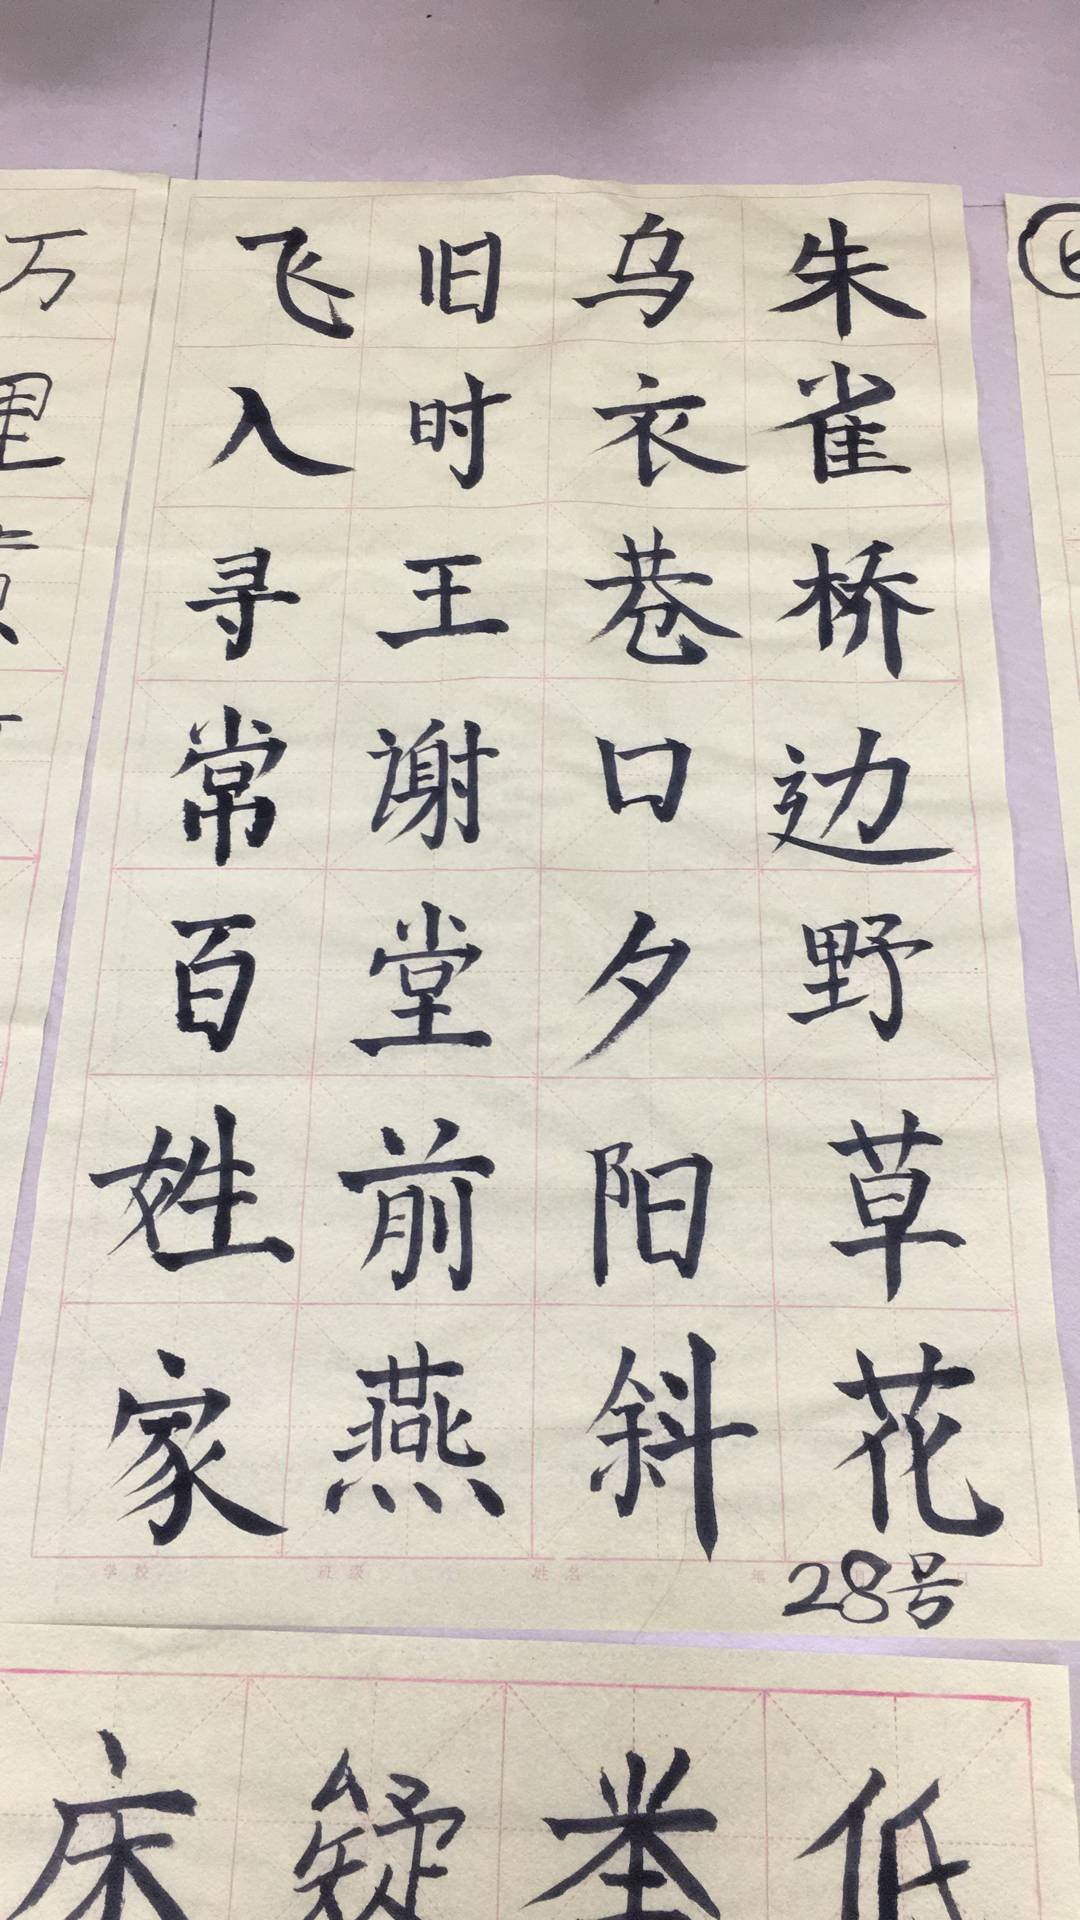 朱雀桥边野草花
乌衣巷口夕阳斜
旧时王谢堂前燕
飞入寻常百姓家
28号
学校 班级 姓名 年 月 日
万里
床 疑 举 低